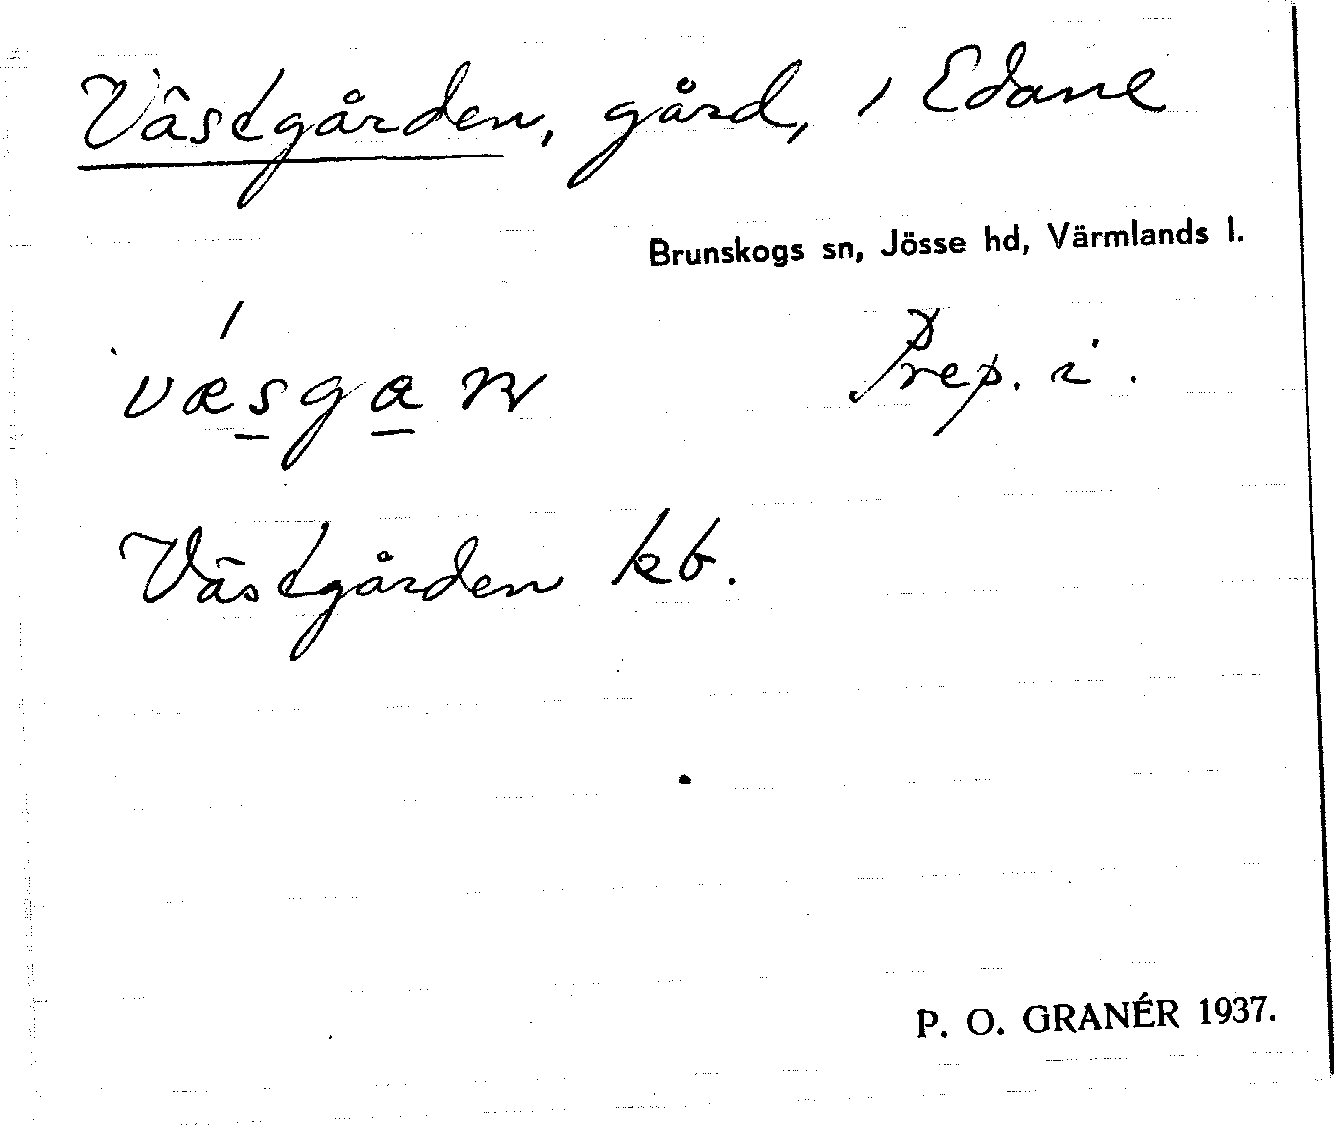 Västgården, gård, i Edane
Brunskogs sn, Jösse hd, Värmlands l.
Prep. i.
Västgården kb.
P. O. GRANÉR 1937.